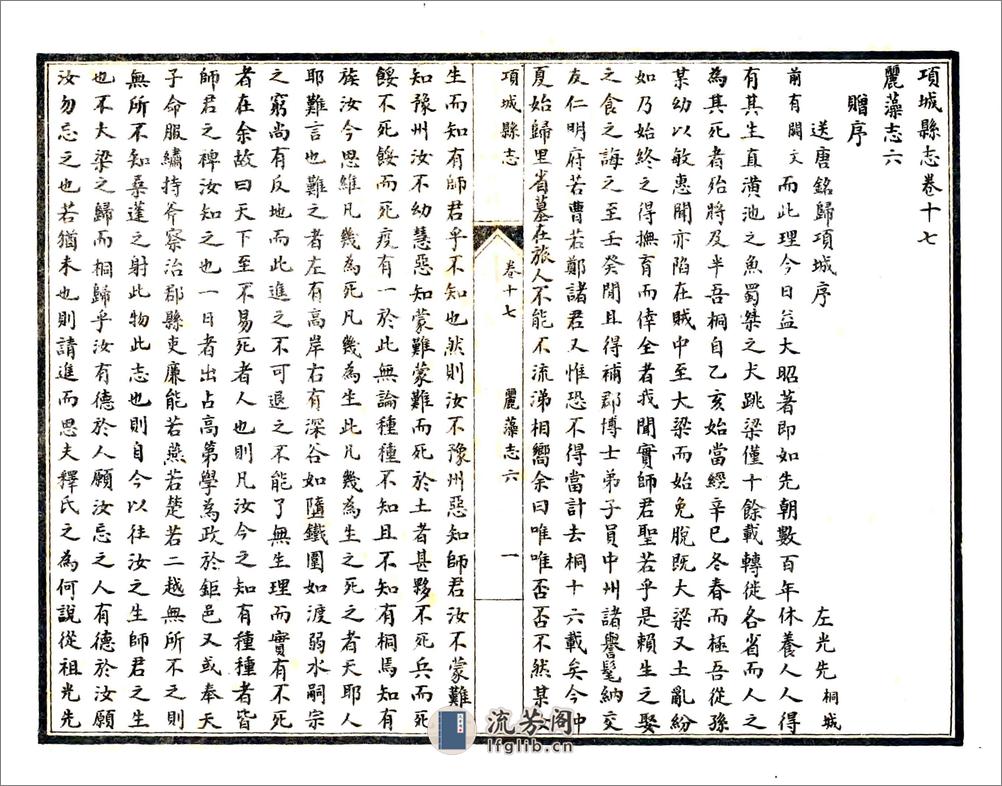 項城縣志卷十七
麗藻志六
贈序
送唐銘歸項城序
左光先桐城
前有闕文而此理今日益大昭著即如先朝數百年休養人人得
有其生直潢池之魚蜀桀之犬跳梁僅十餘載轉徙各省而人之
為其死者殆將及半吾桐自乙亥始當經辛巳冬春而極吾從孫
某幼以敏惠聞亦陷在賊中至大梁而始免脫既大梁又土亂紛
如乃始終之得撫育而倖全者我聞實師君聖若乎是賴生之娶
之食之誨之至壬癸閒且得補郡博士弟子員中州諸譽髦納交
友仁明府若曹若鄭諸君又惟恐不得當計去桐十六載矣今中
夏始歸里省墓在旅人不能不流涕相嚮余曰唯唯否否不然某
項城縣志
卷十七
麗藻志六
一
生而知有師君乎不知也然則汝不豫州惡知師君汝不蒙難
知豫州汝不幼慧惡知蒙難蒙難而死於土者甚夥不死兵而死
餒不死餒而死疫有一於此無論種種不知且不知有桐馬知有
族汝今思維凡幾為死凡幾為生此凡幾為生之死之者天耶人
耶難言也難之者左有高岸右有深谷如隨鐵圍如渡弱水嗣宗
之窮尚有反地而此進之不可退之不能了無生理而實有不死
者在余故曰天下至不易死者人也則凡汝今之知有種種者皆
師君之裨汝知之也一日者出占高第學為政於鉅邑又或奉天
子命服繡持斧察治郡縣吏廉能若燕若楚若二越無所不之則
無所不知桑蓬之射此物此志也則自今以往汝之生師君之生
也不大梁之歸而桐歸乎汝有德於人願汝忘之人有德於汝願
汝勿忘之也若猶未也則請進而思夫釋氏之為何說從祖光先
流芬阁
lfglib.cn